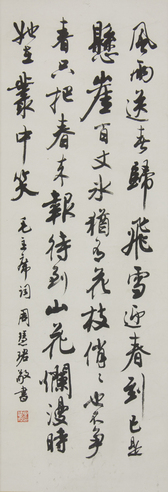 風雨送春歸飛雪迎春到已是
懸崖百丈冰猶有花枝俏〻也不争
春只把春来報待到山花爛漫時
她在叢中笑 毛主席詞周慧珺敬書